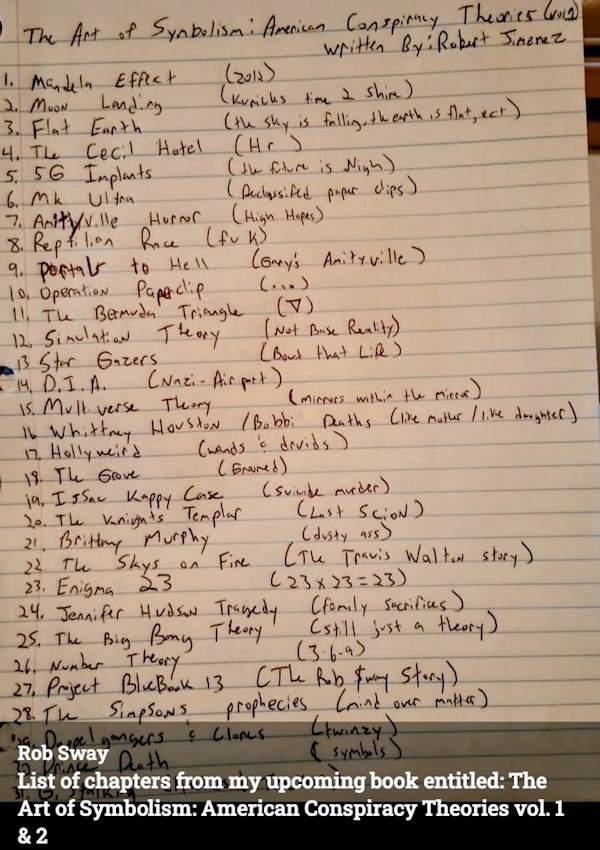 The Art of Synbolism: American Conspiracy Theories (vol 1)
written By: Robert Jimenez
1. Mandela Effect (2012)
2. Moon Landing (Kubricks time 2 Shine)
3. Flat Earth (the sky is falling, the earth is flat, ect)
4. The Cecil Hotel (Hr)
5. 5G Implants (the future is Nigh)
6. Mk Ultra (Declassified paper clips)
7. Amityville Horror (High Hopes)
8. Reptilian Race (fuk)
9. Portals to Hell (Gary's Amityville)
10. Operation Paperclip (...)
11. The Bermuda Triangle (∇)
12. Simulation Theory (Not Base Reality)
13 Star Gazers (Bout that Life)
14. D.I.A. (Nazi-Airport)
15. Multverse Theory (mirrors within the mirror)
16 Whittney Houston / Bobbi Deaths (like mother / like daughter)
17. Hollyweird (wands & druids)
18. The Grove (Grooved)
19. Issac Kappy Case (Suicide murder)
20. The Knights Templar (Last Scion)
21. Brittny Murphy (dusty ass)
22 The Skys on Fire (The Travis Walton story)
23. Enigma 23 (23x23=23)
24. Jennifer Hudson Tragedy (family sacrifices)
25. The Big Bang Theory (still just a theory)
26. Number Theory (3-6-9)
27. Project BlueBook 13 (The Rob $way Story)
28. The Simpsons prophecies (mind over matter)
29. Doppelgangers & Clones (twinzy)
Prince Death (symbols)
Rob Sway
List of chapters from my upcoming book entitled: The
Art of Symbolism: American Conspiracy Theories vol. 1
& 2